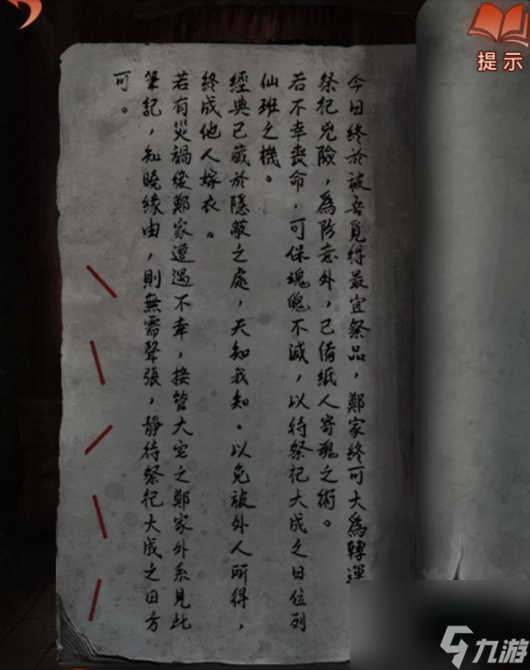 今日終於被吾覓得最宜祭品，鄭家終可大為轉運
祭祀兇險，為防意外，已備紙人寄魂之術。
若不幸喪命，可保魂魄不滅，以待祭祀大成之日位列
仙班之機。
經典已藏於隱蔽之處，天知我知。以免被外人所得，
終成他人嫁衣。
若有災禍後鄭家遭遇不幸，接管大宅之鄭家外系見此
筆記，知曉緣由，則無需聲張，靜待祭祀大成之日方
可。
提示
九游